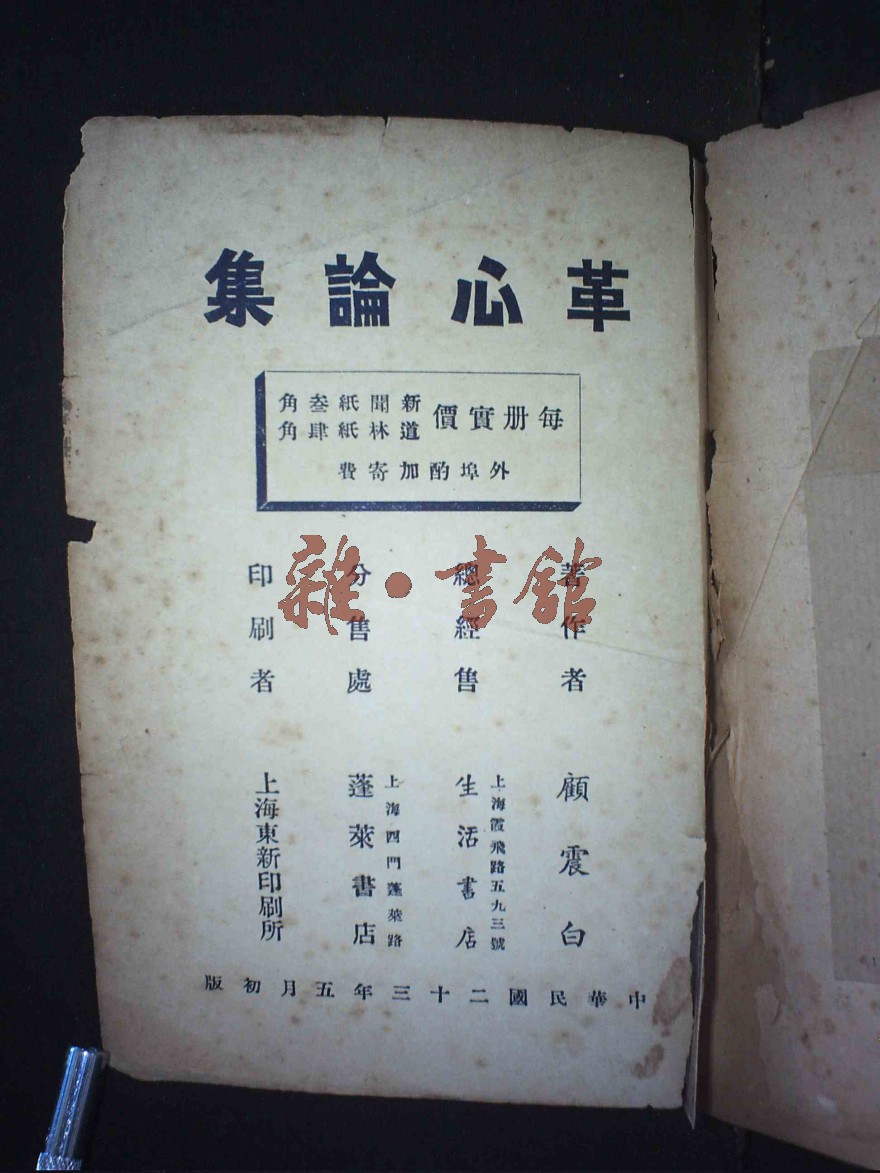 革心論集
每册實價
新聞紙叁角
道林紙肆角
外埠酌加寄費
著作者 顧震白
總經售 上海霞飛路五九三號 生活書店
分售處 上海西門蓬萊路 蓬萊書店
印刷者 上海東新印刷所
中華民國二十三年五月初版
雜·書館